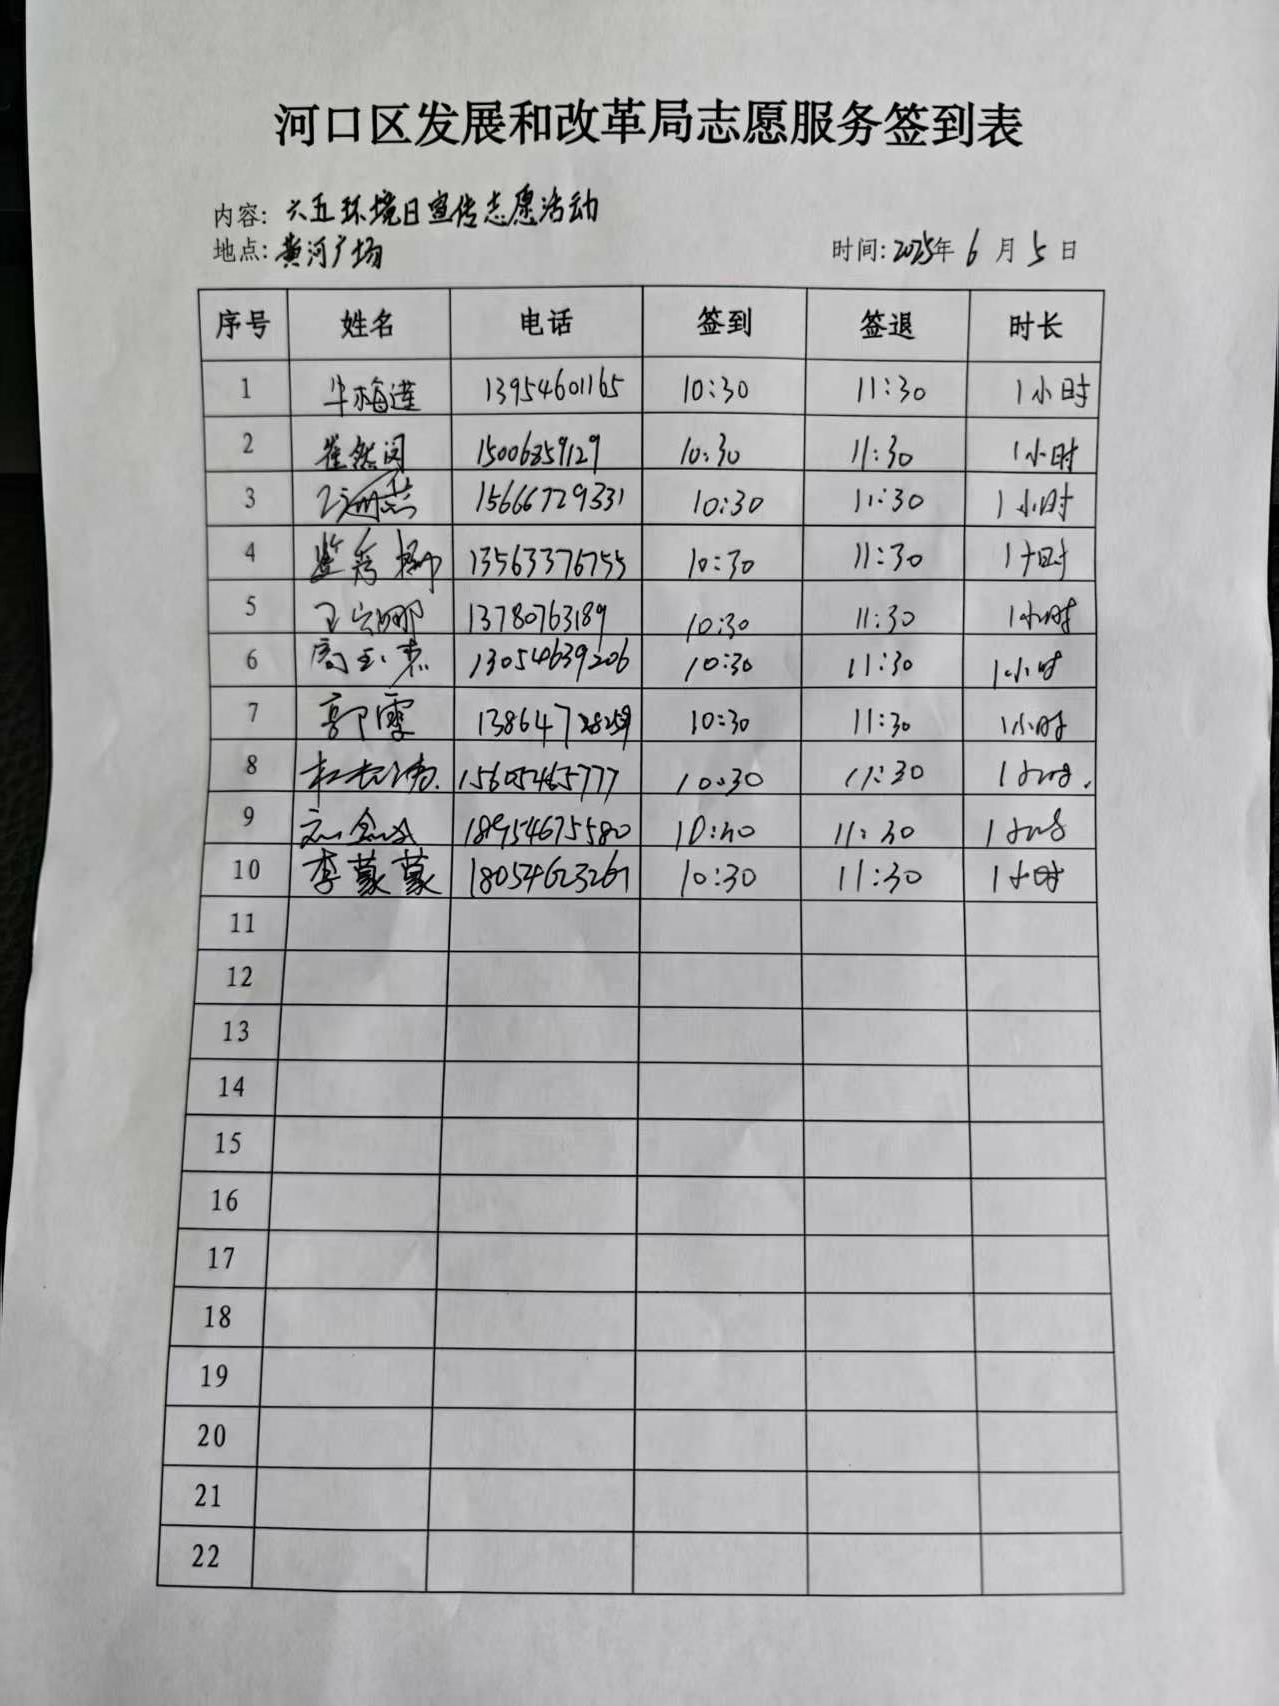 河口区发展和改革局志愿服务签到表
内容: 六五环境日宣传志愿活动
地点: 黄河广场 时间: 2025年 6 月 5 日
序号 姓名 电话 签到 签退 时长
1 牛梅莲 13954601165 10:30 11:30 1小时
2 崔然闵 15006859129 10:30 11:30 1小时
3 15666729331 10:30 11:30 1小时
4 13563376755 10:30 11:30 1小时
5 王 娜 13780763189 10:30 11:30 1小时
6 13054639206 10:30 11:30 1小时
7 郭雪 10:30 11:30 1小时
8 15605465777 10:30 11:30 1小时.
9 18954675580 11:30 1小时
10 李蒙蒙 18054623261 10:30 11:30 1小时
11
12
13
14
15
16
17
18
19
20
21
22